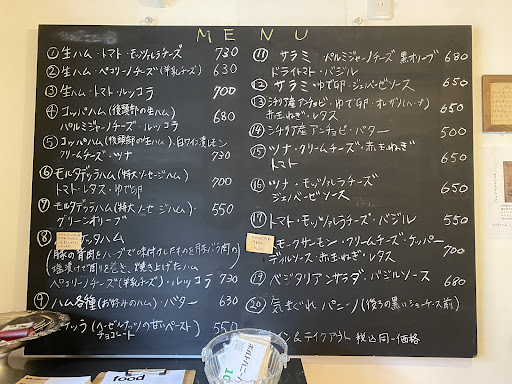 MENU
①生ハム・トマト・モッツァレラチーズ 730
②生ハム・ペコリーノチーズ(羊乳チーズ) 630
③生ハム・トマト・ルッコラ 700
④コッパハム(後頭部の生ハム)
パルミジャーノチーズ・ルッコラ 680
⑤コッパハム(後頭部の生ハム)・白ワイン漬レモン
クリームチーズ・ツナ 730
⑥モルタデッラハム(特大ソーセージハム)
トマト・レタス・ゆで卵 700
⑦モルタデッラハム(特大ソーセージハム)・
グリーンオリーブ 550
⑧ッタハム
(豚の背肉をハーブで味付けしたものを豚バラ肉の
塩漬けで周りを巻き、焼き上げたハム
ペコリーノチーズ(羊乳チーズ)・ルッコラ 730
⑨ハム各種(お好みのハム)・バター 630
(ヘーゼルナッツの甘いペースト)
チョコレート 550
⑪サラミ・パルミジャーノチーズ・黒オリーブ
ドライトマト・バジル 680
⑫サラミ・ゆで卵・ジェノベーゼソース 650
⑬シチリア産アンチョビ・ゆで卵・オレガノ(ハーブ)
赤玉ねぎ・レタス 650
⑭シチリア産アンチョビ・バター 500
⑮ツナ・クリームチーズ・赤玉ねぎ
トマト 650
⑯ツナ・モッツァレラチーズ
ジェノベーゼソース 650
⑰トマト・モッツァレラチーズ・バジル 550
モークサーモン・クリームチーズ・ケッパー
ディルソース・赤玉ねぎ・レタス 700
⑲ベジタリアンサラダ・バジルソース 680
⑳気まぐれパニーノ(後ろの黒いショーケース前)
イン&テイクアウト 税込同一価格
food